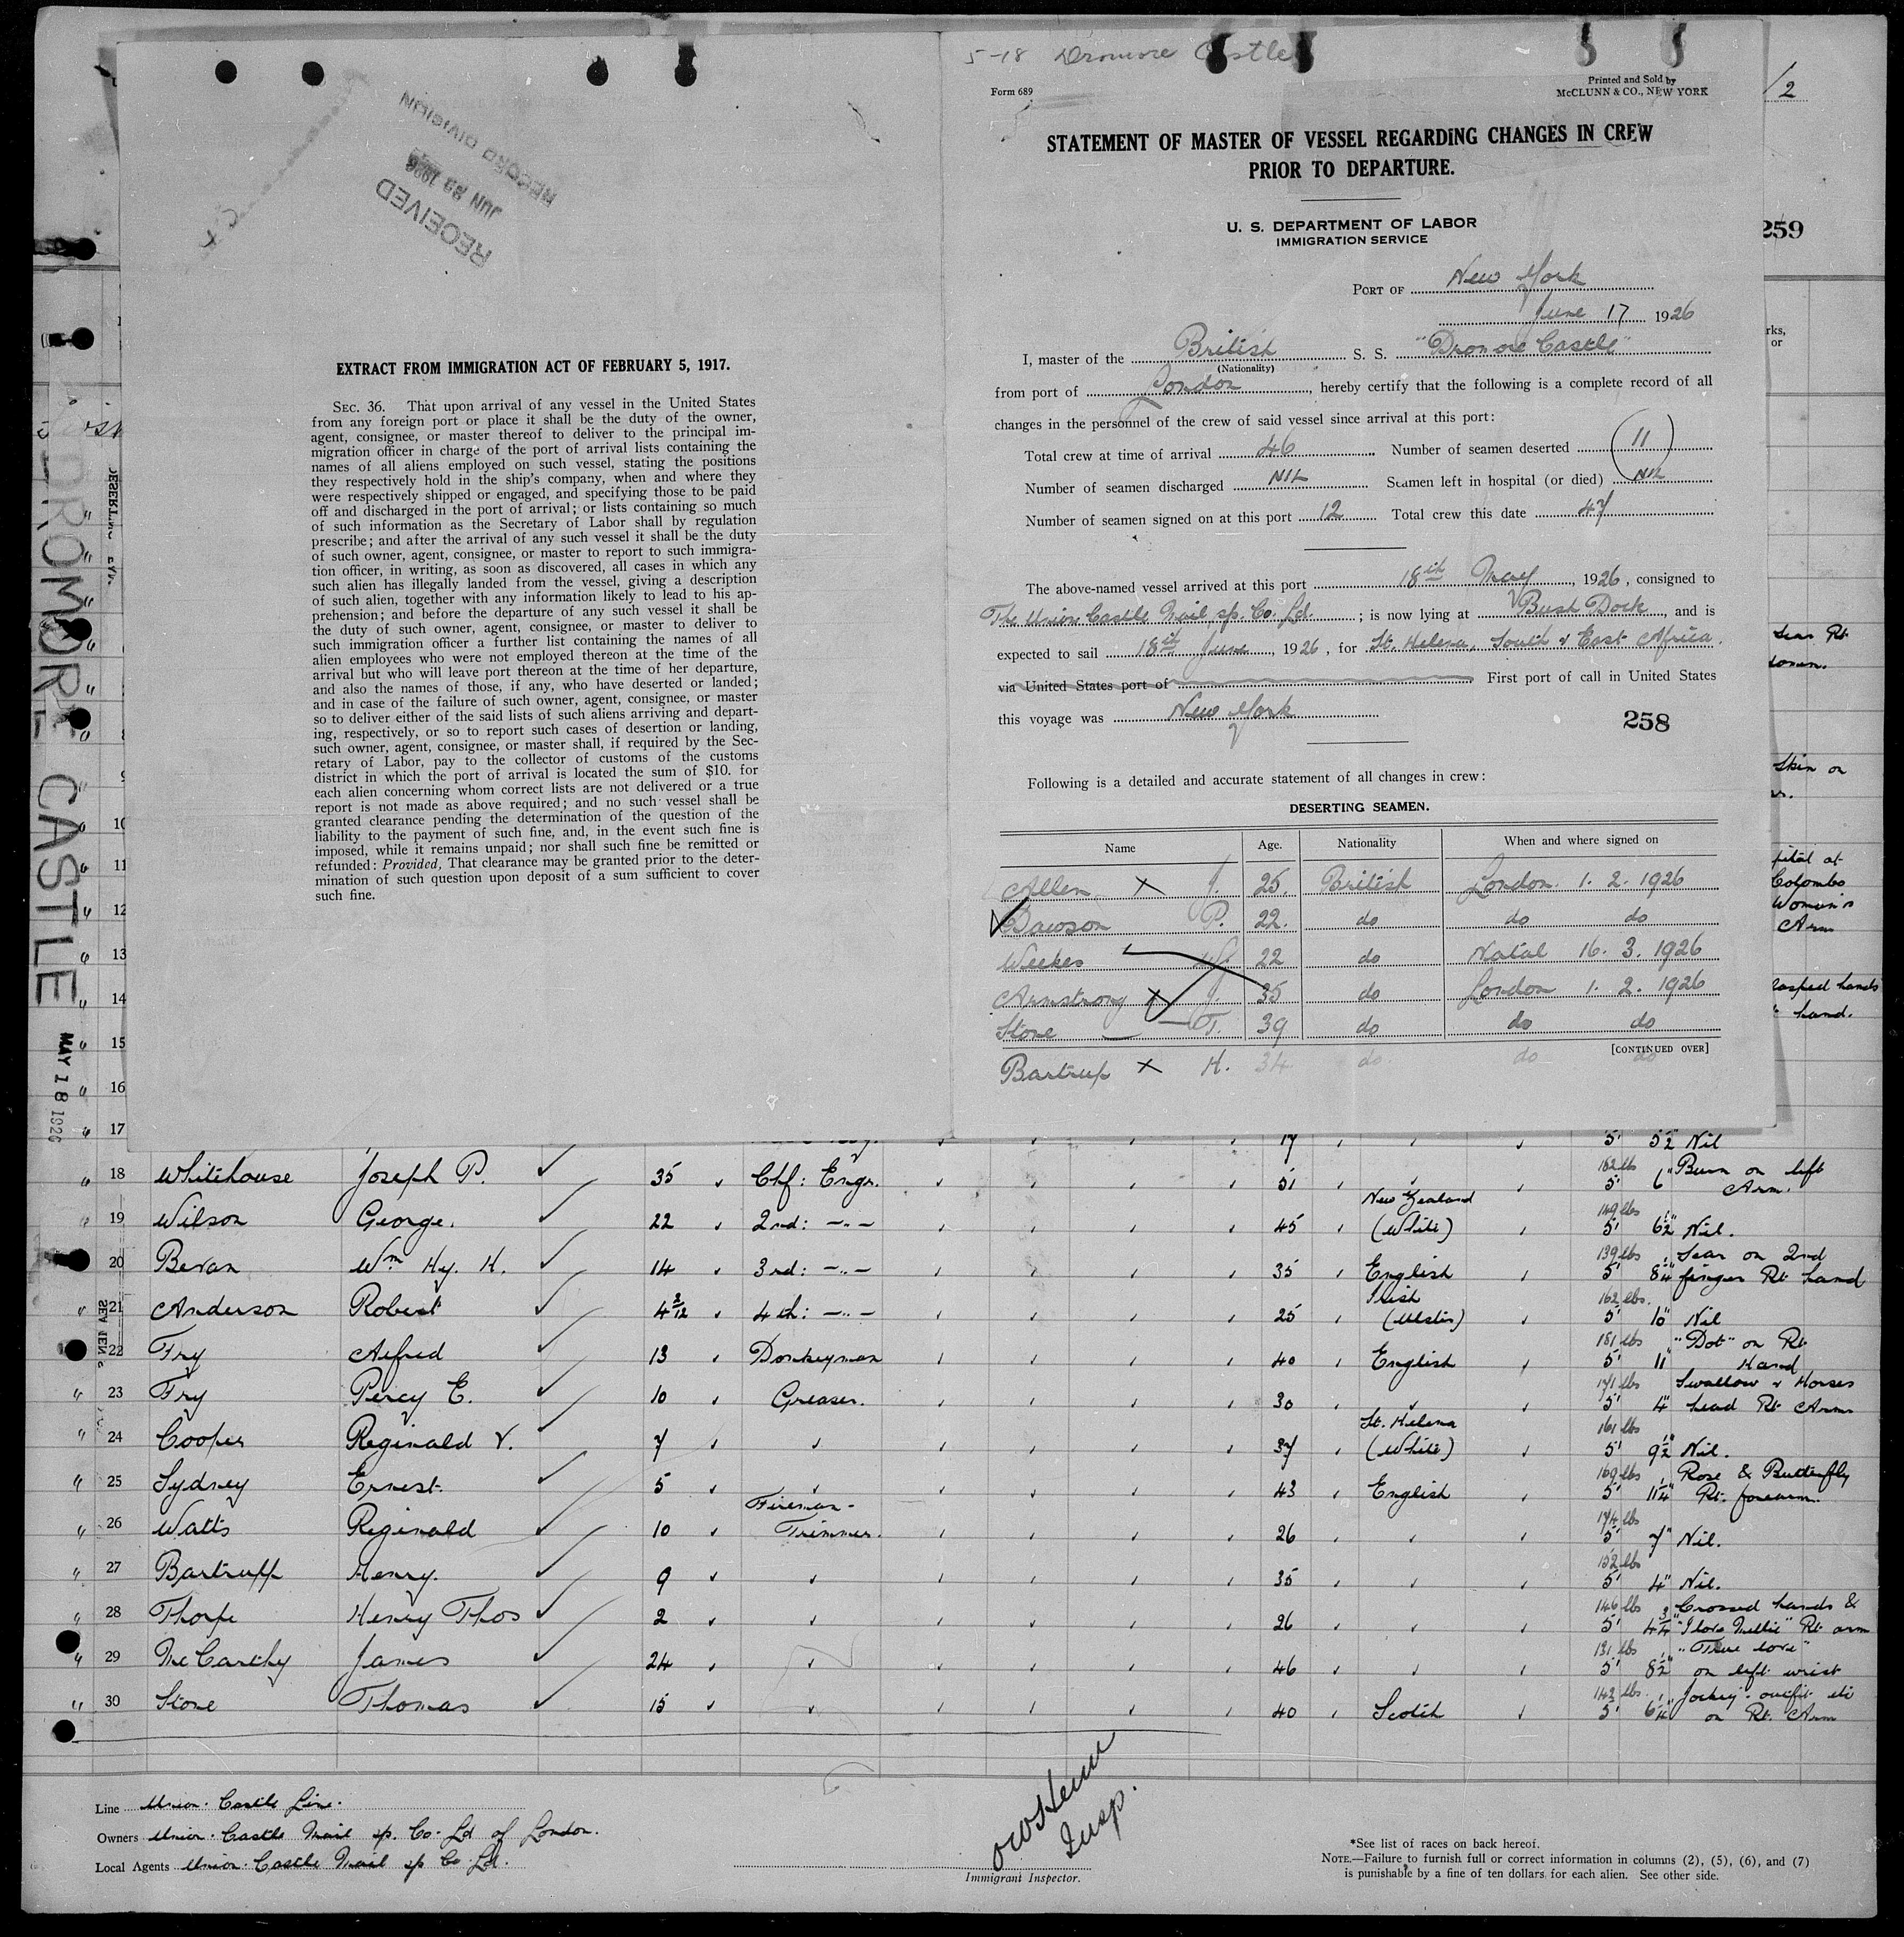 5-18 Dromore Castle
Form 689
Printed and Sold by
McCLUNN & CO., NEW YORK
STATEMENT OF MASTER OF VESSEL REGARDING CHANGES IN CREW
PRIOR TO DEPARTURE.
U. S. DEPARTMENT OF LABOR
IMMIGRATION SERVICE
PORT OF New York
June 17 1926
I, master of the British S. S. "Dromore Castle"
(Nationality)
from port of London, hereby certify that the following is a complete record of all
changes in the personnel of the crew of said vessel since arrival at this port:
Total crew at time of arrival 46 Number of seamen deserted 11
Number of seamen discharged NIL Seamen left in hospital (or died) NIL
Number of seamen signed on at this port 12 Total crew this date 47
The above-named vessel arrived at this port 18th May, 1926, consigned to
The Union Castle Mail sp. Co. Ld. ; is now lying at Bush Dock, and is
expected to sail 18th June, 1926, for St. Helena, South & East Africa.
via United States port of First port of call in United States
this voyage was New York
258
Following is a detailed and accurate statement of all changes in crew:
DESERTING SEAMEN.
Name Age. Nationality When and where signed on
Allen X J. 25. British London. 1. 2. 1926
Dawson P. 22. do do do
Weekes 22 do Natal 16. 3. 1926
Armstrong X J. 35 do London 1. 2. 1926
Stone T. 39 do do do
[CONTINUED OVER]
Bartrup X H. 34 do do do
RECEIVED
JUN 23 1926
RECORD DIVISION
EXTRACT FROM IMMIGRATION ACT OF FEBRUARY 5, 1917.
SEC. 36. That upon arrival of any vessel in the United States
from any foreign port or place it shall be the duty of the owner,
agent, consignee, or master thereof to deliver to the principal im-
migration officer in charge of the port of arrival lists containing the
names of all aliens employed on such vessel, stating the positions
they respectively hold in the ship's company, when and where they
were respectively shipped or engaged, and specifying those to be paid
off and discharged in the port of arrival; or lists containing so much
of such information as the Secretary of Labor shall by regulation
prescribe; and after the arrival of any such vessel it shall be the duty
of such owner, agent, consignee, or master to report to such immigra-
tion officer, in writing, as soon as discovered, all cases in which any
such alien has illegally landed from the vessel, giving a description
of such alien, together with any information likely to lead to his ap-
prehension; and before the departure of any such vessel it shall be
the duty of such owner, agent, consignee, or master to deliver to
such immigration officer a further list containing the names of all
alien employees who were not employed thereon at the time of the
arrival but who will leave port thereon at the time of her departure,
and also the names of those, if any, who have deserted or landed;
and in case of the failure of such owner, agent, consignee, or master
so to deliver either of the said lists of such aliens arriving and depart-
ing, respectively, or so to report such cases of desertion or landing,
such owner, agent, consignee, or master shall, if required by the Sec-
retary of Labor, pay to the collector of customs of the customs
district in which the port of arrival is located the sum of $10. for
each alien concerning whom correct lists are not delivered or a true
report is not made as above required; and no such vessel shall be
granted clearance pending the determination of the question of the
liability to the payment of such fine, and, in the event such fine is
imposed, while it remains unpaid; nor shall such fine be remitted or
refunded: Provided, That clearance may be granted prior to the deter-
mination of such question upon deposit of a sum sufficient to cover
such fine.
DROMORE CASTLE
MAY 18 1926
/2
259
rks,
or
Scar Rt
Skin on
pital at
Colombo
Woman's
Arm
lasped hands
hand.
10
11
12
13
14
15
16
17 17 5' 5½ Nil
18 Whitehouse Joseph P. 35 Chf: Engr. 51 182 lbs 5' 6" Burn on left Arm.
19 Wilson George. 22 2nd: -"- 45 New Zealand (White) 149 lbs 5' 6½" Nil.
20 Bevan Wm Hy. H. 14 3rd: -"- 35 English 139 lbs 5' 8¼" Scar on 2nd finger Rt hand
21 Anderson Robert 4 3/12 4th: -"- 25 Irish (Ulster) 162 lbs. 5' 10" Nil
22 Fry Alfred 13 Donkeyman 40 English 181 lbs 5' 11" "Dot" on Rt Hand
23 Fry Percy E. 10 Greaser. 30 171 lbs 5' 4" Swallow & Horses head Rt Arm
24 Cooper Reginald V. 7 37 St. Helena (White) 161 lbs 5' 9½" Nil.
25 Sydney Ernest. 5 43 English 169 lbs 5' 11¼" Rose & Butterfly Rt. forearm.
26 Watts Reginald 10 Fireman-Trimmer. 26 174 lbs 5' 7" Nil.
27 Bartrupp Henry. 9 35 152 lbs 5' 4" Nil.
28 Thorpe Henry Thos 2 26 146 lbs 5' 4¾" Crossed hands & "I love Nellie" Rt arm
29 McCarthy James 24 46 131 lbs 5' 8½" "True love" on left wrist
30 Stone Thomas 15 40 Scotch 143 lbs. 5' 6¼" "Jockey" outfit etc on Rt. Arm
Line Union-Castle Line.
Owners Union-Castle Mail sp. Co. Ld of London.
Local Agents Union-Castle Mail sp Co Ld.
Insp.
Immigrant Inspector.
*See list of races on back hereof.
NOTE.—Failure to furnish full or correct information in columns (2), (5), (6), and (7)
is punishable by a fine of ten dollars for each alien. See other side.